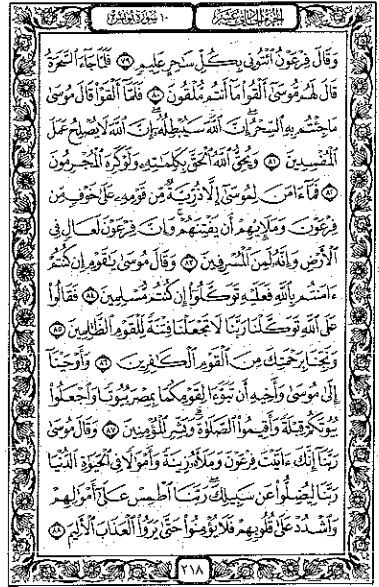 الجزء الحادي عشر ١٠ سورة يونس
وَقَالَ فِرْعَوْنُ ٱئْتُونِي بِكُلِّ سَٰحِرٍ عَلِيمٍ ٧٩ فَلَمَّا جَآءَ ٱلسَّحَرَةُ
قَالَ لَهُم مُّوسَىٰٓ أَلْقُوا۟ مَآ أَنتُم مُّلْقُونَ ٨٠ فَلَمَّآ أَلْقَوْا۟ قَالَ مُوسَىٰ
مَا جِئْتُم بِهِ ٱلسِّحْرُ إِنَّ ٱللَّهَ سَيُبْطِلُهُۥٓ إِنَّ ٱللَّهَ لَا يُصْلِحُ عَمَلَ
ٱلْمُفْسِدِينَ ٨١ وَيُحِقُّ ٱللَّهُ ٱلْحَقَّ بِكَلِمَٰتِهِۦ وَلَوْ كَرِهَ ٱلْمُجْرِمُونَ
٨٢ فَمَآ ءَامَنَ لِمُوسَىٰٓ إِلَّا ذُرِّيَّةٌ مِّن قَوْمِهِۦ عَلَىٰ خَوْفٍ مِّن
فِرْعَوْنَ وَمَلَإِي۟هِمْ أَن يَفْتِنَهُمْ ۚ وَإِنَّ فِرْعَوْنَ لَعَالٍ فِي
ٱلْأَرْضِ وَإِنَّهُۥ لَمِنَ ٱلْمُسْرِفِينَ ٨٣ وَقَالَ مُوسَىٰ يَٰقَوْمِ إِن كُنتُمْ
ءَامَنتُم بِٱللَّهِ فَعَلَيْهِ تَوَكَّلُوٓا۟ إِن كُنتُم مُّسْلِمِينَ ٨٤ فَقَالُوا۟
عَلَى ٱللَّهِ تَوَكَّلْنَا رَبَّنَا لَا تَجْعَلْنَا فِتْنَةً لِّلْقَوْمِ ٱلظَّٰلِمِينَ ٨٥
وَنَجِّنَا بِرَحْمَتِكَ مِنَ ٱلْقَوْمِ ٱلْكَٰفِرِينَ ٨٦ وَأَوْحَيْنَآ
إِلَىٰ مُوسَىٰ وَأَخِيهِ أَن تَبَوَّءَا لِقَوْمِكُمَا بِمِصْرَ بُيُوتًا وَٱجْعَلُوا۟
بُيُوتَكُمْ قِبْلَةً وَأَقِيمُوا۟ ٱلصَّلَوٰةَ ۗ وَبَشِّرِ ٱلْمُؤْمِنِينَ ٨٧ وَقَالَ مُوسَىٰ
رَبَّنَآ إِنَّكَ ءَاتَيْتَ فِرْعَوْنَ وَمَلَأَهُۥ زِينَةً وَأَمْوَٰلًا فِي ٱلْحَيَوٰةِ ٱلدُّنْيَا
رَبَّنَا لِيُضِلُّوا۟ عَن سَبِيلِكَ ۖ رَبَّنَا ٱطْمِسْ عَلَىٰٓ أَمْوَٰلِهِمْ
وَٱشْدُدْ عَلَىٰ قُلُوبِهِمْ فَلَا يُؤْمِنُوا۟ حَتَّىٰ يَرَوُا۟ ٱلْعَذَابَ ٱلْأَلِيمَ ٨٨
٢١٨